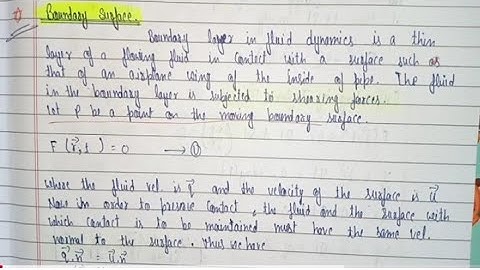 Boundary Surface.
Boundary layer in fluid dynamics is a thin
layer of a flowing fluid in contact with a surface such as
that of an airplane wing of the inside of pipe. The fluid
in the boundary layer is subjected to shearing forces.
let P be a point on the moving boundary surface.
F(r⃗,t) = 0 → ①
where the fluid vel. is q⃗ and the velocity of the surface is u⃗
Now in order to preserve contact, the fluid and the surface with
which contact is to be maintained must have the same vel.
normal to the surface. Thus we have
q⃗.n⃗ = u⃗.n⃗